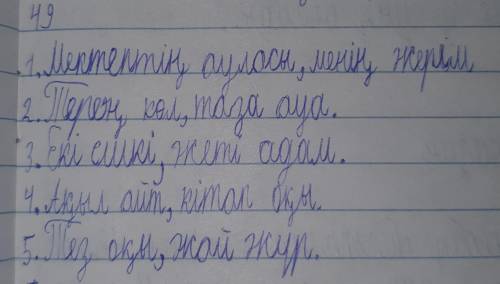 49
1. Мектептің ауласы, менің жерім
2. Терең көл, таза ауа.
3. Екі есікі, жеті адам.
4. Ақыл айт, кітап оқы.
5. Тез оқы, жай жүр.